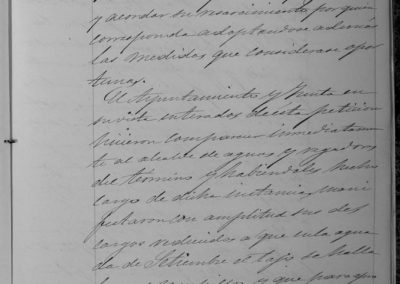 y acordar su resarcimiento por quien
corresponda adoptandose además
las medidas que considerase opor
tunas.
El Ayuntamiento y Junta en
su vista enterados de esta petición
hicieron comparecer inmediatamen
te al alcalde de aguas y regadores
del término y habiendoles hecho
cargo de dicha instancia, mani
festaron con amplitud sus des
cargos reducidos a que en la agua
da de Setiembre el tajo se halla
y que para que